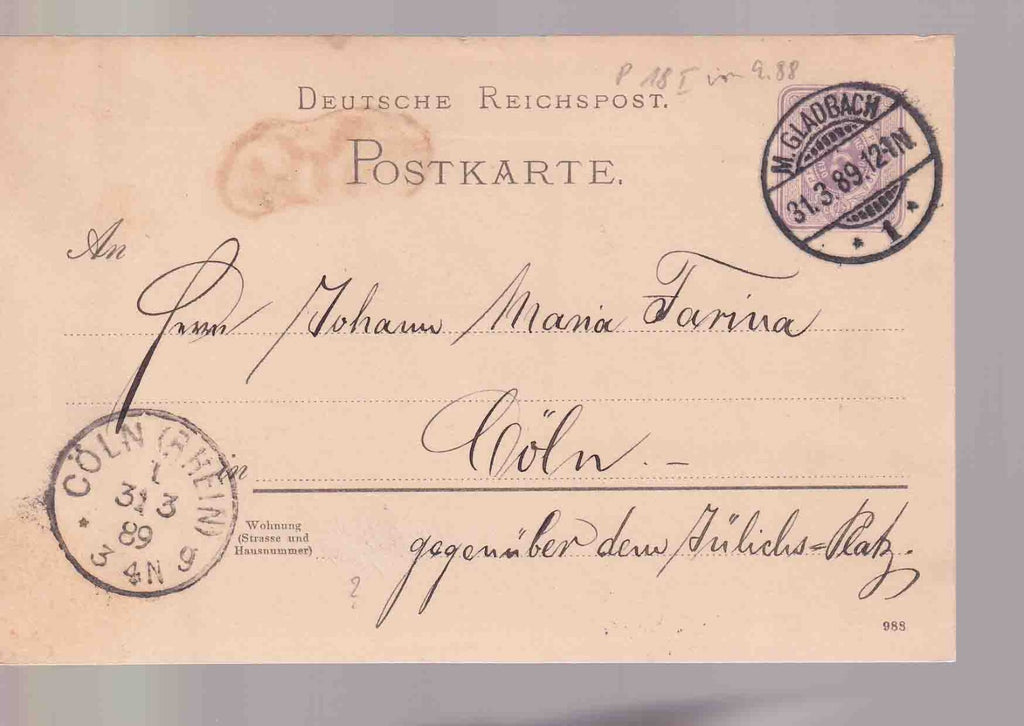 P 18 I von 9.88
DEUTSCHE REICHSPOST.
POSTKARTE.
M. GLADBACH
31.3.89.12-1N
* 1 *
An
Herrn Johann Maria Farina
in Cöln. -
Wohnung
(Strasse und
Hausnummer)
gegenüber dem Jülichs=Platz.
CÖLN (RHEIN)
1
31 3
89
3-4N
* 9
?
988